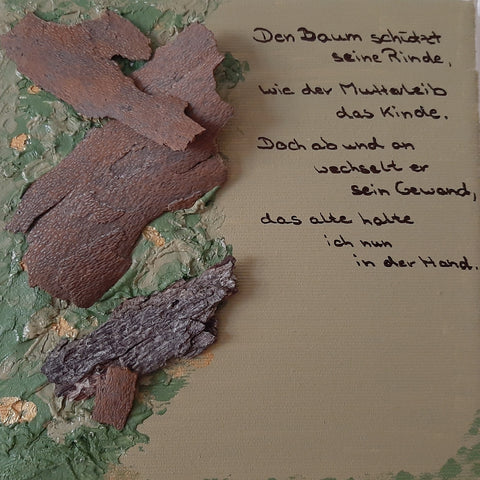 Den Baum schützt
seine Rinde,
wie der Mutterleib
das Kinde.
Doch ab und an
wechselt er
sein Gewand,
das alte halte
ich nun
in der Hand.